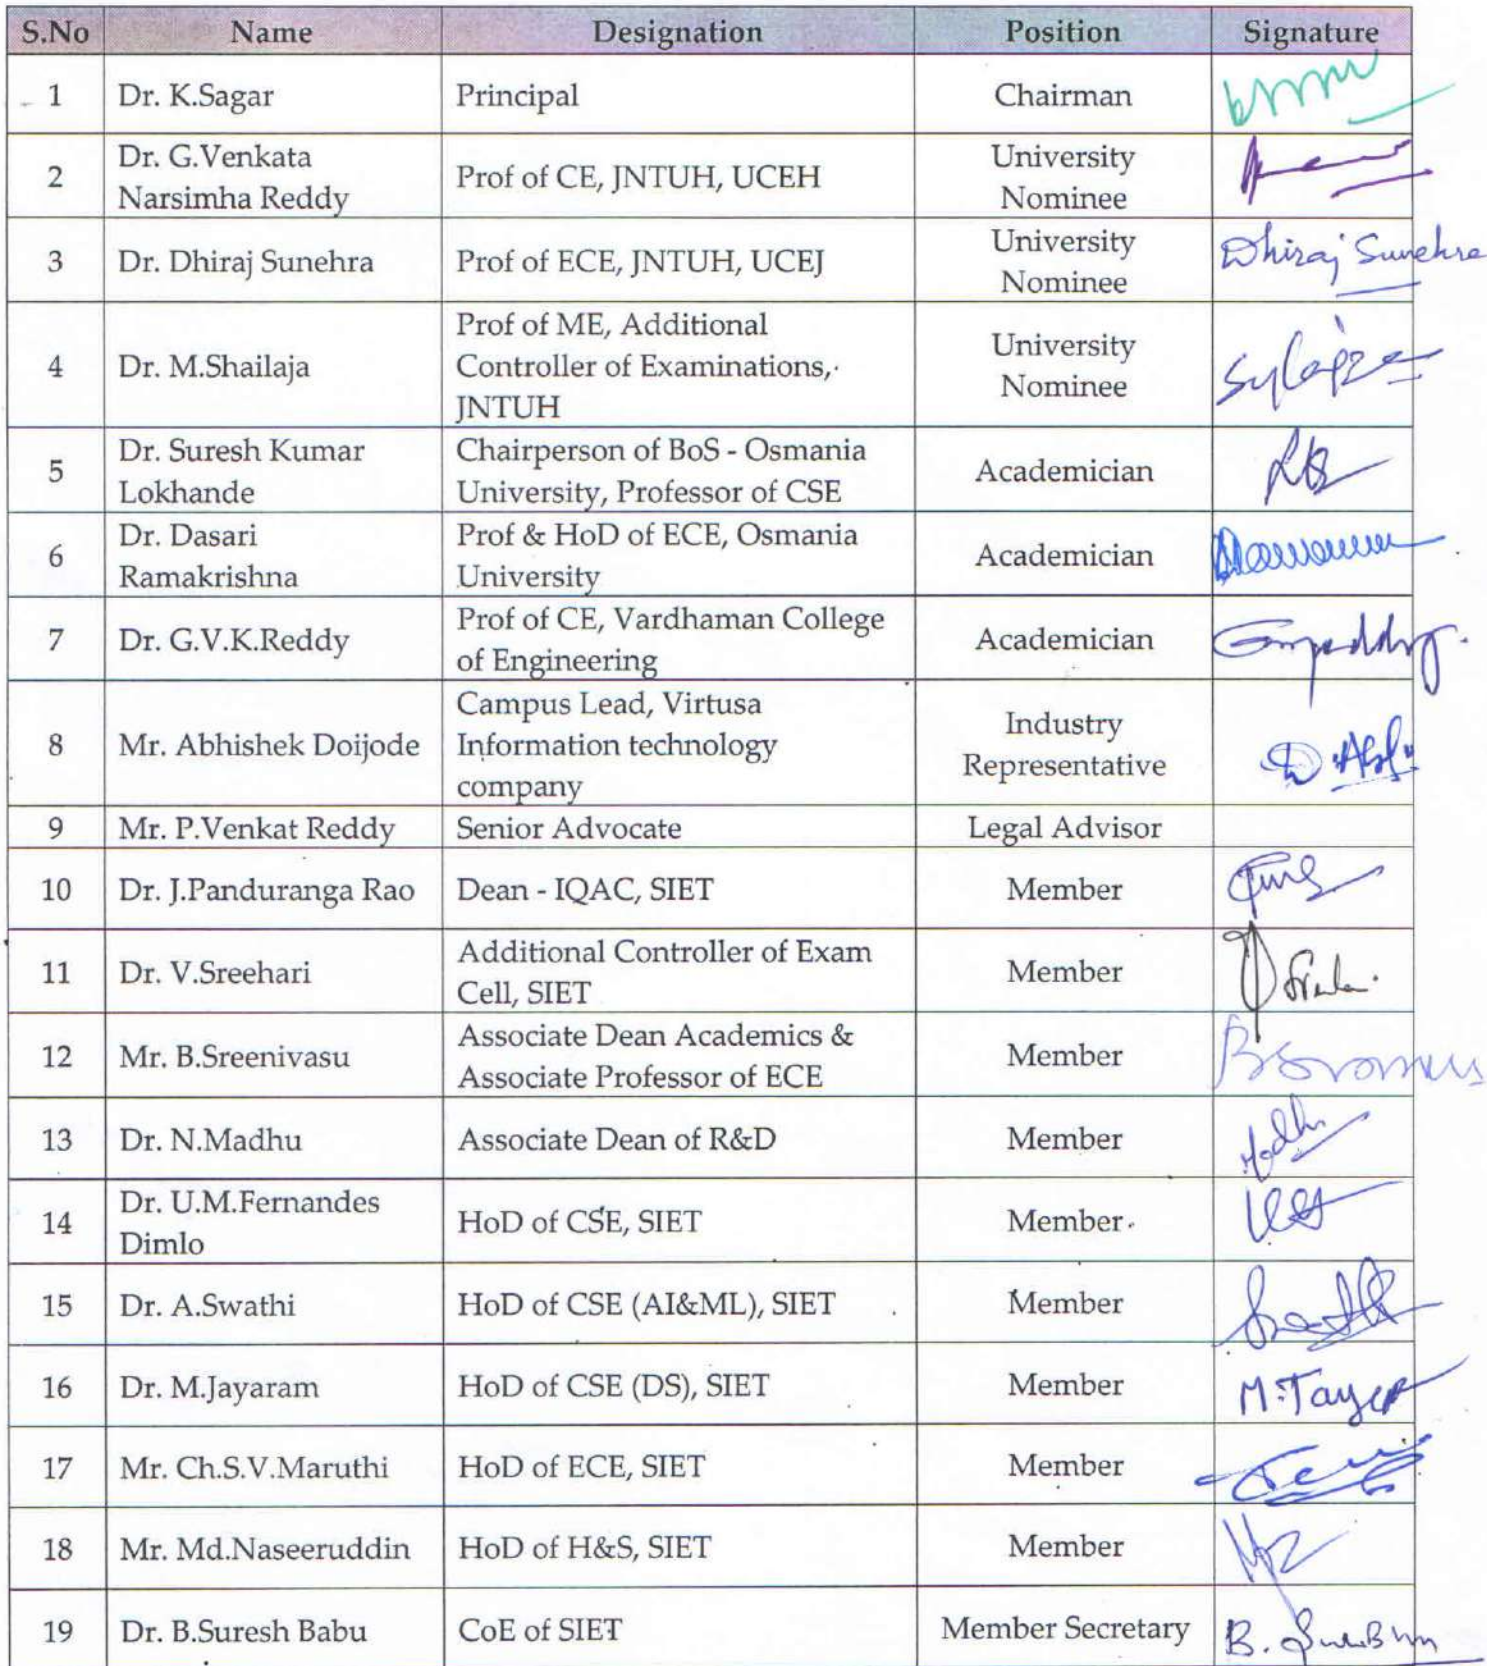 S.No Name Designation Position Signature
1 Dr. K.Sagar Principal Chairman
2 Dr. G.Venkata Narsimha Reddy Prof of CE, JNTUH, UCEH University Nominee
3 Dr. Dhiraj Sunehra Prof of ECE, JNTUH, UCEJ University Nominee Dhiraj Sunehra
4 Dr. M.Shailaja Prof of ME, Additional Controller of Examinations, JNTUH University Nominee
5 Dr. Suresh Kumar Lokhande Chairperson of BoS - Osmania University, Professor of CSE Academician
6 Dr. Dasari Ramakrishna Prof & HoD of ECE, Osmania University Academician
7 Dr. G.V.K.Reddy Prof of CE, Vardhaman College of Engineering Academician
8 Mr. Abhishek Doijode Campus Lead, Virtusa Information technology company Industry Representative
9 Mr. P.Venkat Reddy Senior Advocate Legal Advisor
10 Dr. J.Panduranga Rao Dean - IQAC, SIET Member
11 Dr. V.Sreehari Additional Controller of Exam Cell, SIET Member
12 Mr. B.Sreenivasu Associate Dean Academics & Associate Professor of ECE Member
13 Dr. N.Madhu Associate Dean of R&D Member
14 Dr. U.M.Fernandes Dimlo HoD of CSE, SIET Member
15 Dr. A.Swathi HoD of CSE (AI&ML), SIET Member
16 Dr. M.Jayaram HoD of CSE (DS), SIET Member
17 Mr. Ch.S.V.Maruthi HoD of ECE, SIET Member
18 Mr. Md.Naseeruddin HoD of H&S, SIET Member
19 Dr. B.Suresh Babu CoE of SIET Member Secretary